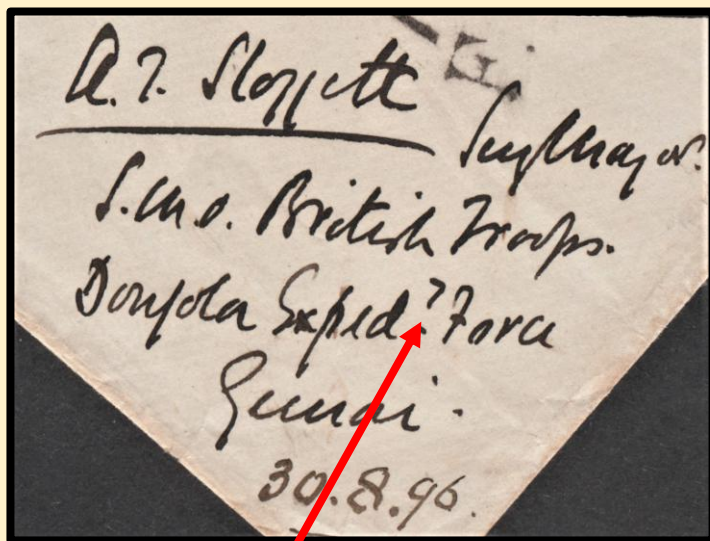 A.T. Sloggett
Surg Major.
S.M.O. British Troops.
Dongola Exped.y Force
Gemai.
30.8.96.